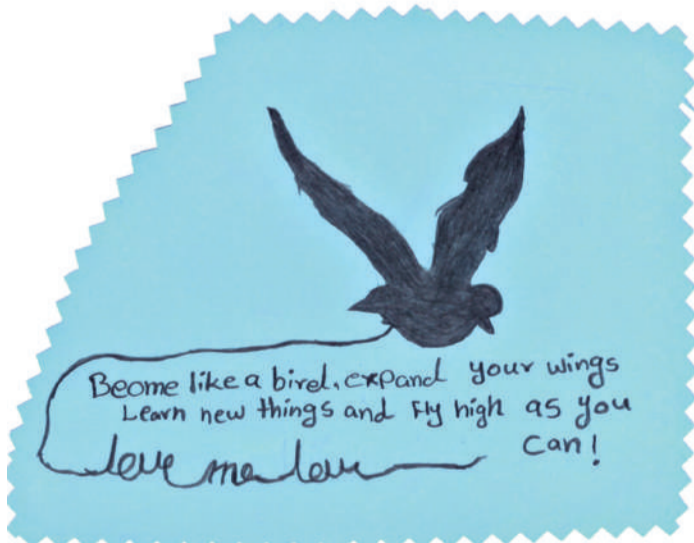 Beome like a bird, expand your wings
Learn new things and Fly high as you
can!
love me love